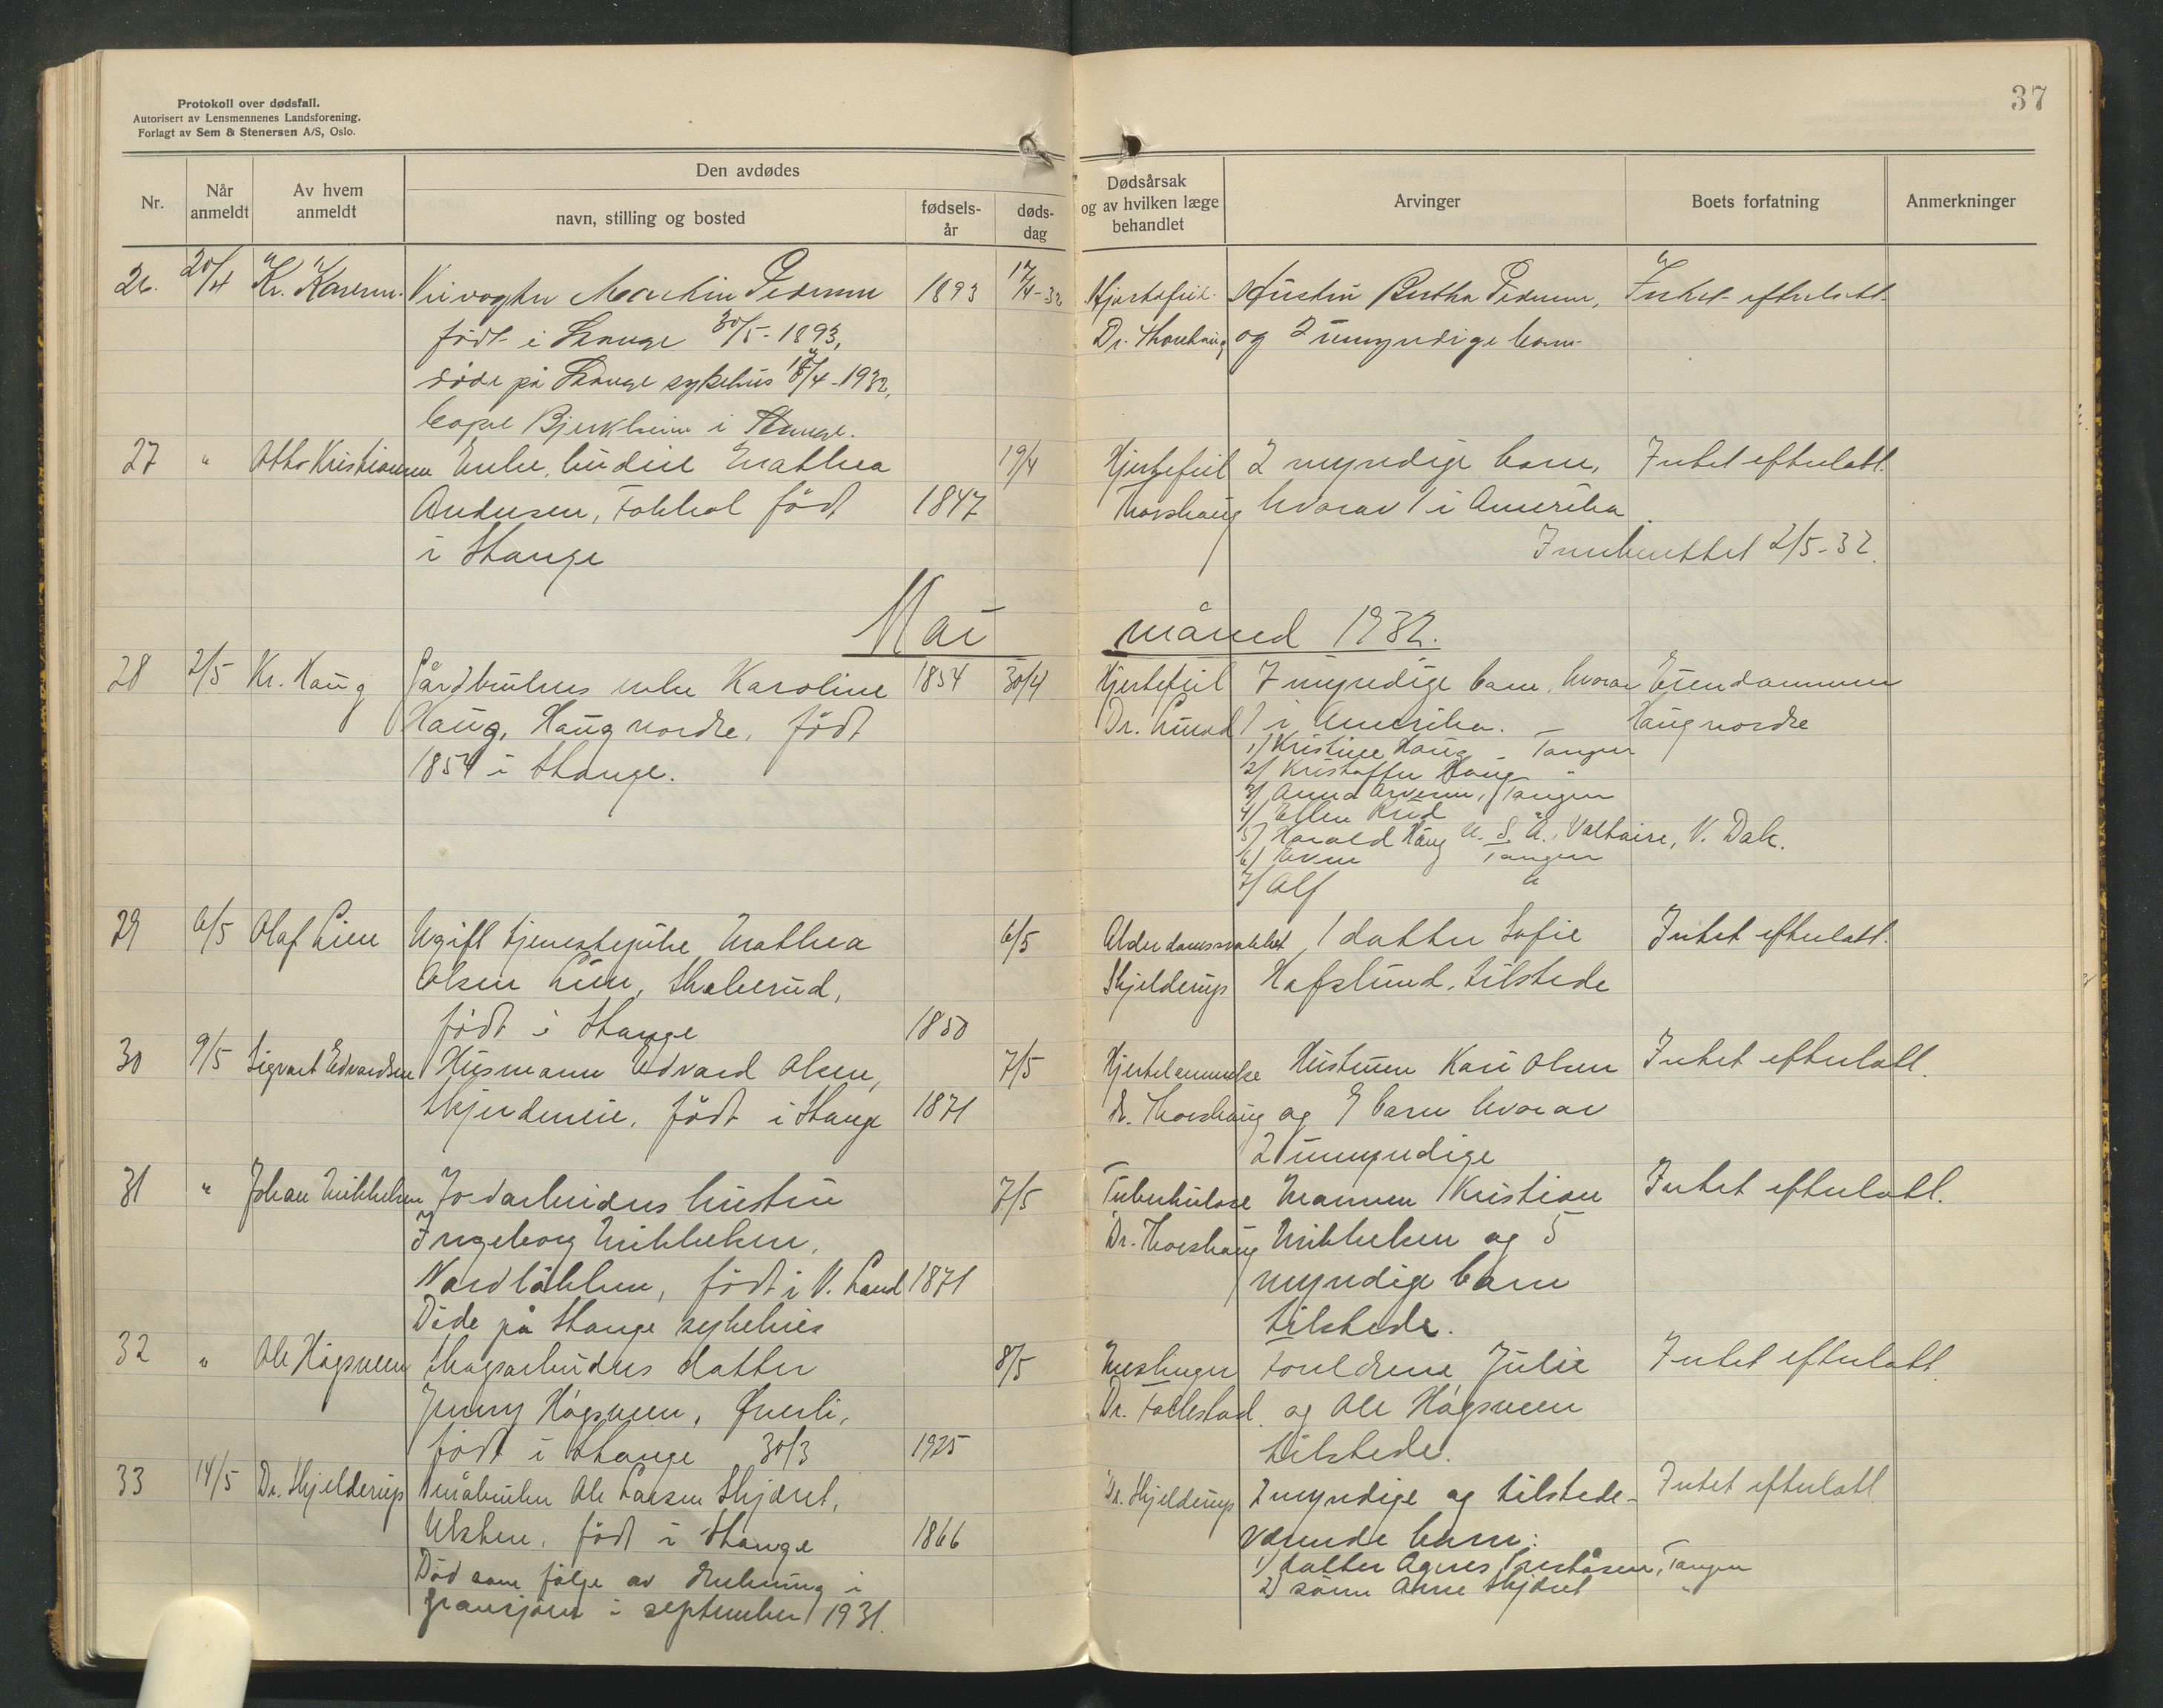 37
Protokoll over dødsfall.
Autorisert av Lensmennenes Landsforening.
Forlagt av Sem & Stenersen A/S, Oslo.
Nr.
Når anmeldt
Av hvem anmeldt
Den avdødes
navn, stilling og bosted
fødsels-år
døds-dag
Dødsårsak og av hvilken læge behandlet
Arvinger
Boets forfatning
Anmerkninger
26. 20/4 Kr. Martin Pedersen 1893 17/4-32 Hjertefeil Bertha Pedersen, Intet efterlatt.
født i Stange 30/5-1893, Dr. Thorshaug og 2 umyndige barn.
døde på Stange sykehus 17/4-1932,
Bjerkheim i Stange.
27 " Otto Kristiansen Enke, budeie Mathea 19/4 Hjertefeil 2 myndige barn, Intet efterlatt.
Andersen, født 1847 Thorshaug hvorav 1 i Amerika
i Stange Innberettet 2/5-32.
Mai måned 1932.
28 2/5 Kr. Haug Gårdbrukers enke Karoline 1854 30/4 Hjertefeil 7 myndige barn, hvorav Eiendommen
Haug, Haug nordre, født Dr. Lund 1 i Amerika. Haug nordre
1854 i Stange.
1) Kristine Haug - Tangen
2) Kristoffer Haug "
3) Anna Tangen
4) Ellen Rud
5) Harald Haug U.S.A., Voltaire, N. Dak.
6) Even Tangen
7) Alf "
29 6/5 Olaf Lien Ugift tjenestepike Mathea 6/5 Alderdomssvakhet 1 datter Sofie Intet efterlatt.
Olsen Lien, født i Stange 1850 Skjelderup Hafslund, tilstede
30 9/5 Sigvart Edvardsen Husmann Edvard Olsen, 7/5 Hjertelammelse Hustruen Kari Olsen Intet efterlatt.
født i Stange 1871 dr. Thorshaug og 9 barn hvorav
2 umyndige
31 " Johan Mikkelsen Jordarbeiders hustru 7/5 Tuberkulose Mannen Kristian Intet efterlatt.
Ingeborg Mikkelsen, Dr. Thorshaug Mikkelsen og 5
Nordløkken, født i V. Land 1871 myndige barn
Døde på Stange sykehus tilstede.
32 " Ole Högsveen Skogsarbeiders datter 8/5 Meslinger Foreldrene Julie Intet efterlatt
Jenny Högsveen, Qverli, Dr. Follestad og Ole Högsveen
født i Stange 30/3 1925 tilstede.
33 14/5 Dr. Skjelderup Småbruker Ole Larsen Skjæret, Dr. Skjelderup 2 myndige og tilstede- Intet efterlatt
født i Stange 1866 værende barn:
Død som følge av drukning i 1) datter Agnes Tangen
september 1931. 2) sønn Arne Skjæret "